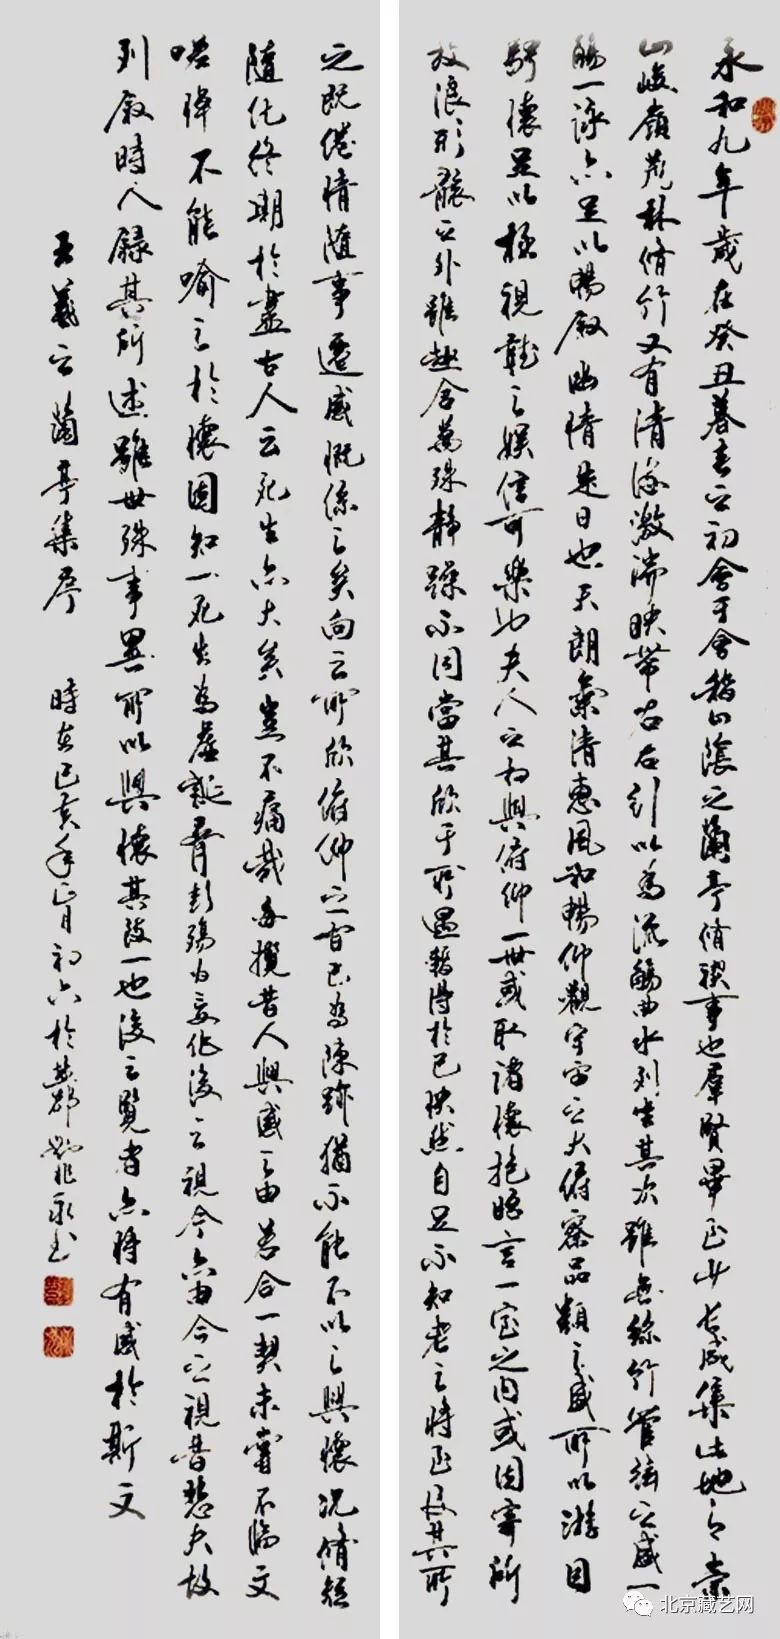 永和九年歲在癸丑暮春之初會于會稽山陰之蘭亭脩禊事也羣賢畢至少長咸集此地有崇
山峻嶺茂林脩竹又有清流激湍映帶左右引以為流觴曲水列坐其次雖無絲竹管弦之盛一
觴一詠亦足以暢敘幽情是日也天朗氣清惠風和暢仰觀宇宙之大俯察品類之盛所以游目
騁懷足以極視聽之娛信可樂也夫人之相與俯仰一世或取諸懷抱悟言一室之內或因寄所
放浪形骸之外雖趣舍萬殊靜躁不同當其欣于所遇暫得於己快然自足不知老之將至及其所
之既倦情隨事遷感慨係之矣向之所欣俯仰之間已為陳跡猶不能不以之興懷況脩短
隨化終期於盡古人云死生亦大矣豈不痛哉每攬昔人興感之由若合一契未嘗不臨文
嗟悼不能喻之於懷固知一死生為虛誕齊彭殤為妄作後之視今亦由今之視昔悲夫故
列敘時人錄其所述雖世殊事異所以興懷其致一也後之覽者亦將有感於斯文
王羲之蘭亭集序 時在己亥年正月初六於
北京藏艺网